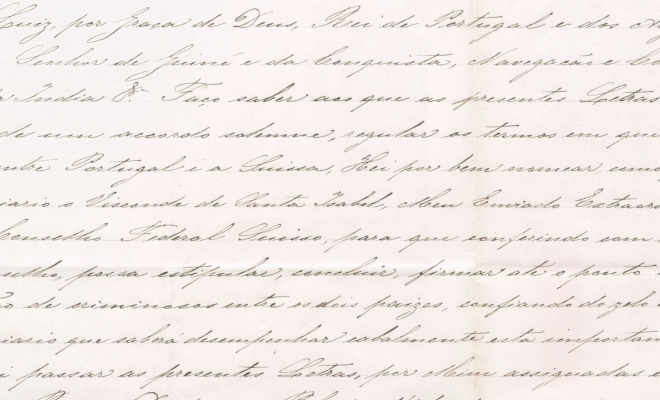 Luiz, por Graça de Deus, Rei de Portugal e dos
Senhor de Guiné e da Conquista, Navegação e
India &ª Faço saber aos que as presentes Letras
de um accordo solemne, regular os termos em que
entre Portugal e a Suissa, Hei por bem nomear, como
o Visconde de Santa Isabel, Meu Enviado Extraor
Conselho Federal Suisso, para que conferindo com
selho, possa estipular, concluir, firmar até o ponto
de criminosos entre os dois paizes, confiando do zelo
iario que saberá desempenhar cabalmente esta importan
passar as presentes Letras, por Mim assignadas e